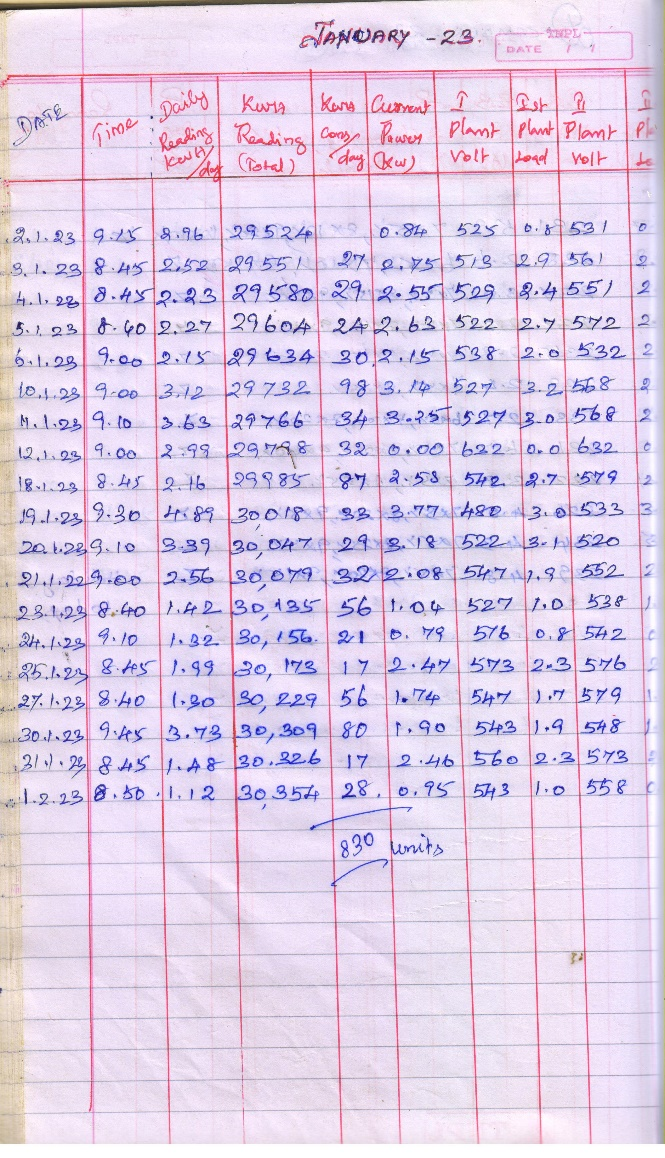 JANUARY - 23.
TNPL
DATE / /
DATE Time Daily Reading Kwh/day Kwh Reading (Total) Kwh cons/day Current Power (Kw) I Plant Volt Ist Plant Load II Plant Volt
2.1.23 9.15 2.96 29524 0.84 525 0.8 531 0
3.1.23 8.45 2.52 29551 27 2.75 513 2.9 561 2.
4.1.23 8.45 2.23 29580 29 2.55 529 2.4 551 2
5.1.23 8.40 2.27 29604 24 2.63 522 2.7 572 2.
6.1.23 9.00 2.15 29634 30 2.15 538 2.0 532 2
10.1.23 9.00 3.12 29732 98 3.14 527 3.2 568 2
11.1.23 9.10 3.63 29766 34 3.25 527 3.0 568 2
12.1.23 9.00 2.99 29798 32 0.00 622 0.0 632 0
18.1.23 8.45 2.16 29985 87 2.53 542 2.7 579 2
19.1.23 9.30 4.89 30,018 33 3.77 480 3.0 533 3
20.1.23 9.10 3.39 30,047 29 3.18 522 3.1 520
21.1.22 9.00 2.56 30,079 32 2.08 547 1.9 552 2
23.1.23 8.40 1.42 30,135 56 1.04 527 1.0 538 1.
24.1.23 9.10 1.32 30,156. 21 0.79 576 0.8 542 0
25.1.23 8.45 1.99 30,173 17 2.47 573 2.3 576
27.1.23 8.40 1.30 30,229 56 1.74 547 1.7 579 1.
30.1.23 9.45 3.73 30,309 80 1.90 543 1.9 548 1.
31.1.23 8.45 1.48 30.326 17 2.46 560 2.3 573
1.2.23 8.50 1.12 30,354 28. 0.95 543 1.0 558 0
830 units